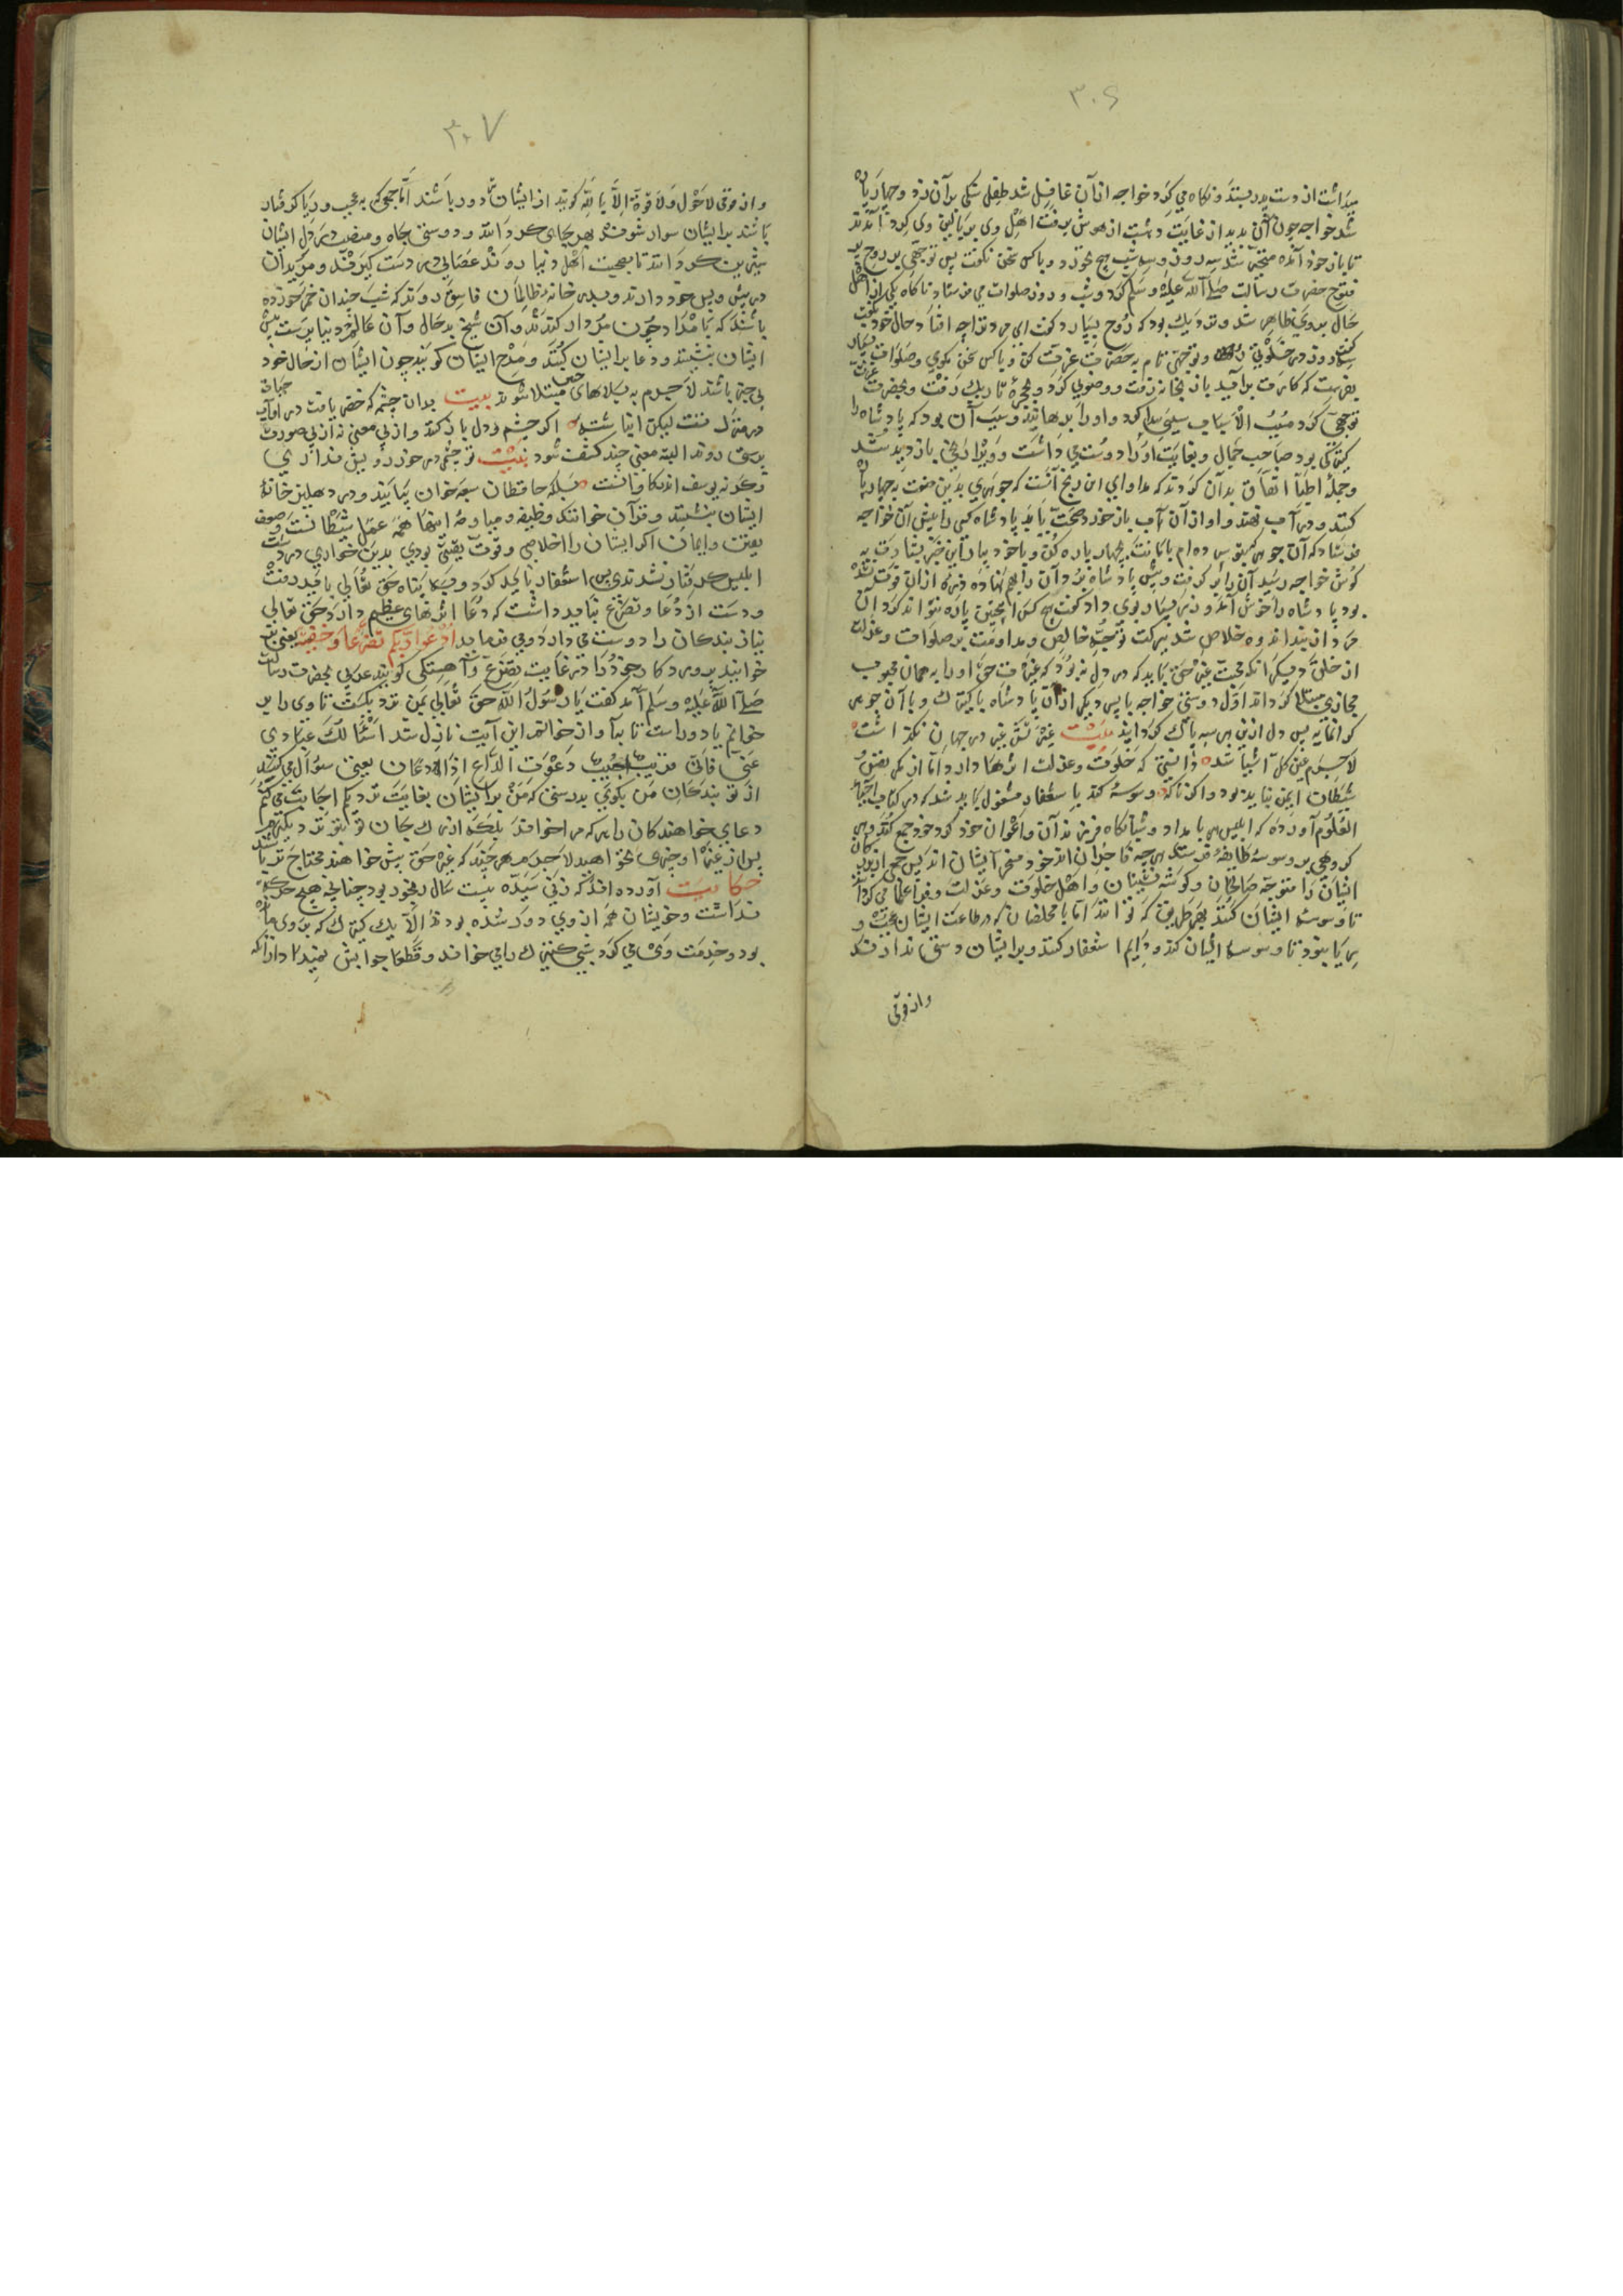 ۳۰۶
میداشت از دست بر میستد و نکاه می کرد خواجه از آن غافل شد طفلی سنکی بر آن زد و چهار پاره
شد خواجه چون آن بدید از غایت دهشت از هوش برفت اهل وی بر بالین وی کرد آمدند
تا باز خود آمده متحیر شد سه روز و سه شب هیچ نخورد و با کس سخن نکفت پس توجهی بر روح پر
فتوح حضرت رسالت صلی الله علیه و سلم کرد و شب و روز صلوات می فرستاد ناکاه یکی از اهل
حال بروی ظاهر شد و نزدیک بود که روح بسپارد کفت ای مرد ترا چه افتاد حال خود بکفت
کفت سه روز در خلوتی و توجهی تمام به حضرت عزت کن و با کس سخن مکوی و صلوات بسیار
بفرست که کارت برآید باز بخانه رفت و وضوی کرد و بحجره تاریک رفت و بحضرت عزت
توجهی کرد مسبب الاسباب سببی پیدا کرد و او را برهانید و سبب آن بود که پادشاه را
کنیزکی بود صاحب جمال و بغایت او را دوست می داشت و ویرا رنجی باز دید شد
و جملهٔ اطبا اتفاق بدان کردند که مداوای این رنج آنست که جوهری بدین صفت به چهار پاره
کنند و در آب نهند و او از آن آب باز خورد صحت یابد پادشاه کسی را پیش آن خواجه
فرستاد که آن جوهر که بتو سپرده ام بامانت بچهار پاره کن و با خود بیار این خبر بشارت به
کوش خواجه رسید آن را برکرفت و پیش پادشاه برد و آن را بهم نهاده ذره از آن فوت نشده
بود پادشاه را خوش آمد و زر بسیار بوی داد کفت هیچ کس اینچنین پاره نتواند کرد آن
مرد از بند اندوه خلاص شد ببرکت توجه خالص و مداومت بر صلوات و عزلت
از خلق دیکر آنکه محبت غیر حق باید که در دل نبود که غیرت حق او را به همان محبوب
مجازی مبتلا کرداند اول دوستی خواجه با پسر دیکر از آن پادشاه با کنیزک و با آن جوهر
کرانمایه پس دل ازین هر سه پاک کردانید بیت غیرتش غیر در جهان نکذاشت
لاجرم عین کل اشیا شد دانستی که خلوت و عزلت اثرها دارد اما از مکر نفس و
شیطان ایمن نباید بود و اکر ناکه وسوسه کند باستغفار مشغول باید شد که در کتاب احیاء
العلوم آورده که ابلیس هر بامداد و شبانکاه فرزندان و اعوان خود کرد خود جمع کند و هر
کروهی بر وسوسهٔ طایفه فرستد هر چه فاجران اند خود مسخر ایشان اند پس جمعی از بزرکان
ایشان را متوجه صالحان و کوشه نشینان و اهل خلوت و عزلت و فقرا علما می کرداند
تا وسوسهٔ ایشان کنند بهر طریق که توانند اما با مخلصان که در طاعت ایشان عجب و
ریا نبود تا وسوسهٔ ایشان کند و دایم استغفار کنند و بر ایشان دستی ندارند
وازقوتی
۳۰۷
و از قوتی لا حول و لا قوة الا بالله کویند از ایشان دور باشند اما جمعی که به عجب و ریا کرفتار
باشند بر ایشان سوار شوند هر جای کردانند و دوستی جاه و منصب در دل ایشان
شیرین کردانند تا بصحبت اهل دنیا روند عصایی در دست کیرند و مریدان
در پیش و پس خود دارند و بدر خانه ظالمان فاسق روند که شب چندان خمر خورده
باشند که بامداد چون مردار کنده اند و آن شیخ بدحال و آن عالم دنیاپرست پیش
ایشان بنشیند و دعا بر ایشان کنند و مدح ایشان کویند چون ایشان از حال خود
بی خبر باشند لاجرم به بلاهای چنین مبتلا شوند بیت بدان چشمه که خضر یافت در او آب حیات
در منزل تست لیکن انباشته اکر چشم دل باز کند و از پی معنی نه از پی صورت
برستی روند البته معنی چند کشف شود بیت تو چشمی در خور رویش نداری
وکرنه یوسف اندر کاروانست بلکه حافظان سبعه خوان بیایند و در دهلیز خانهٔ
ایشان بنشینند و قرآن خوانند وظیفه و میاومه اینها همه عمل شیطانست و ضعف
یقین و ایمان اکر ایشان را اخلاص و قوت یقین بودی بدین خواری در دست
ابلیس کرفتار نشدندی پس استغفار باید کرد و پناه حق تعالی باید رفت
و دست از دعا و تضرع نباید داشت که دعا اثرهای عظیم دارد و حق تعالی
نیاز بندکان را دوست می دارد و می فرماید ادعوا ربکم تضرعا و خفیة یعنی
خوانید پروردکار خود را در غایت تضرع و آهستکی کویند عربی بحضرت رسالت
صلی الله علیه و سلم آمد کفت یا رسول الله حق تعالی بمن نزدیکست تا وی را پر
خوانم یا دورست تا بآواز خوانم این آیت نازل شد اذا سالک عبادی
عنی فانی قریب اجیب دعوة الداع اذا دعان یعنی سؤال می کنند
از تو بندکان من بکوی بدرستی که من بر ایشان بغایت نزدیکم اجابت می کنم
دعای خواهندکان را هر که مرا خوانند بلکه از رک جان تو بتو نزدیکترم
پس از غیر او چیزی نخواهید لاجرم هر چند که غیر حق بیش خواهند محتاج تر باشند
حکایت آورده اند که زنی سیده بیست سال رنجور بود چنانچه هیچ حرکت
نداشت و خویشان همه از وی دور شده بودند الا یک کنیزک که بروی مانده
بود و خدمت وی می کرد شبی کنیزک را می خواند و قطعا جوابش نمیداد از آنکه